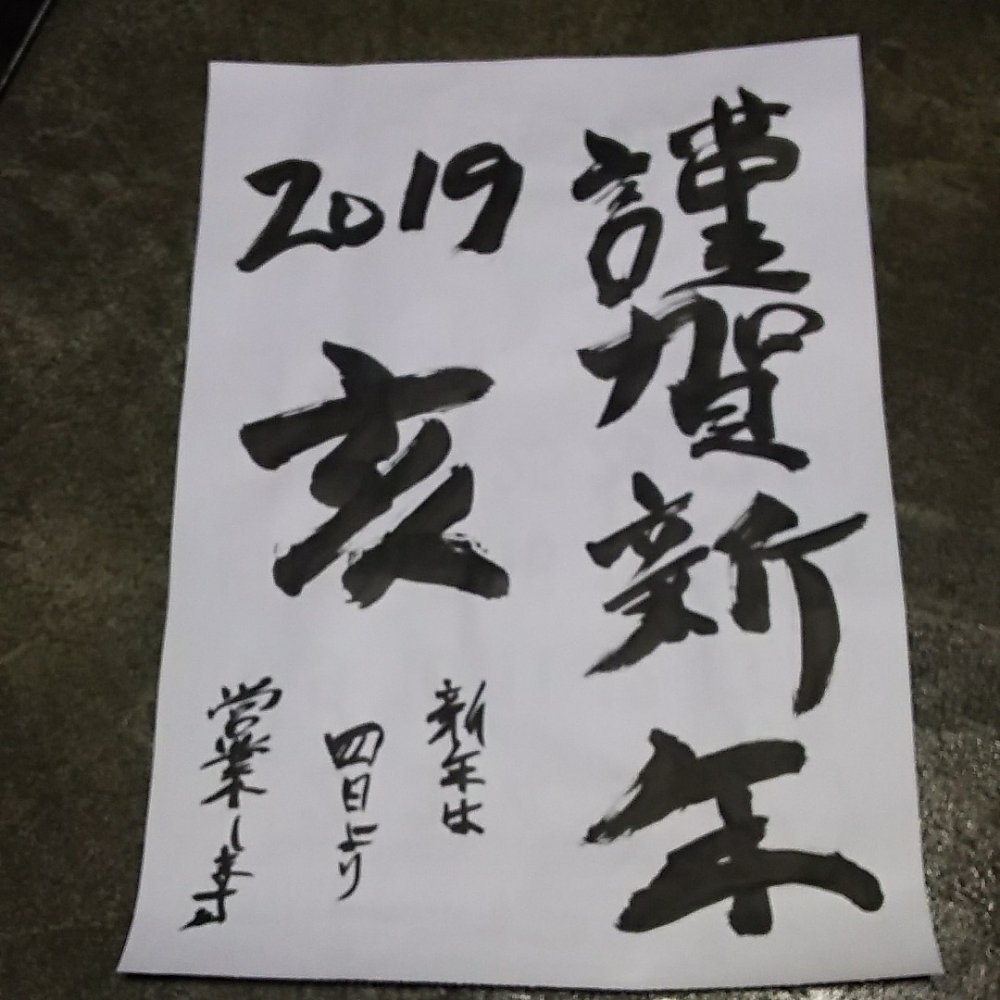 謹賀新年
2019
亥
新年は
四日より
営業します